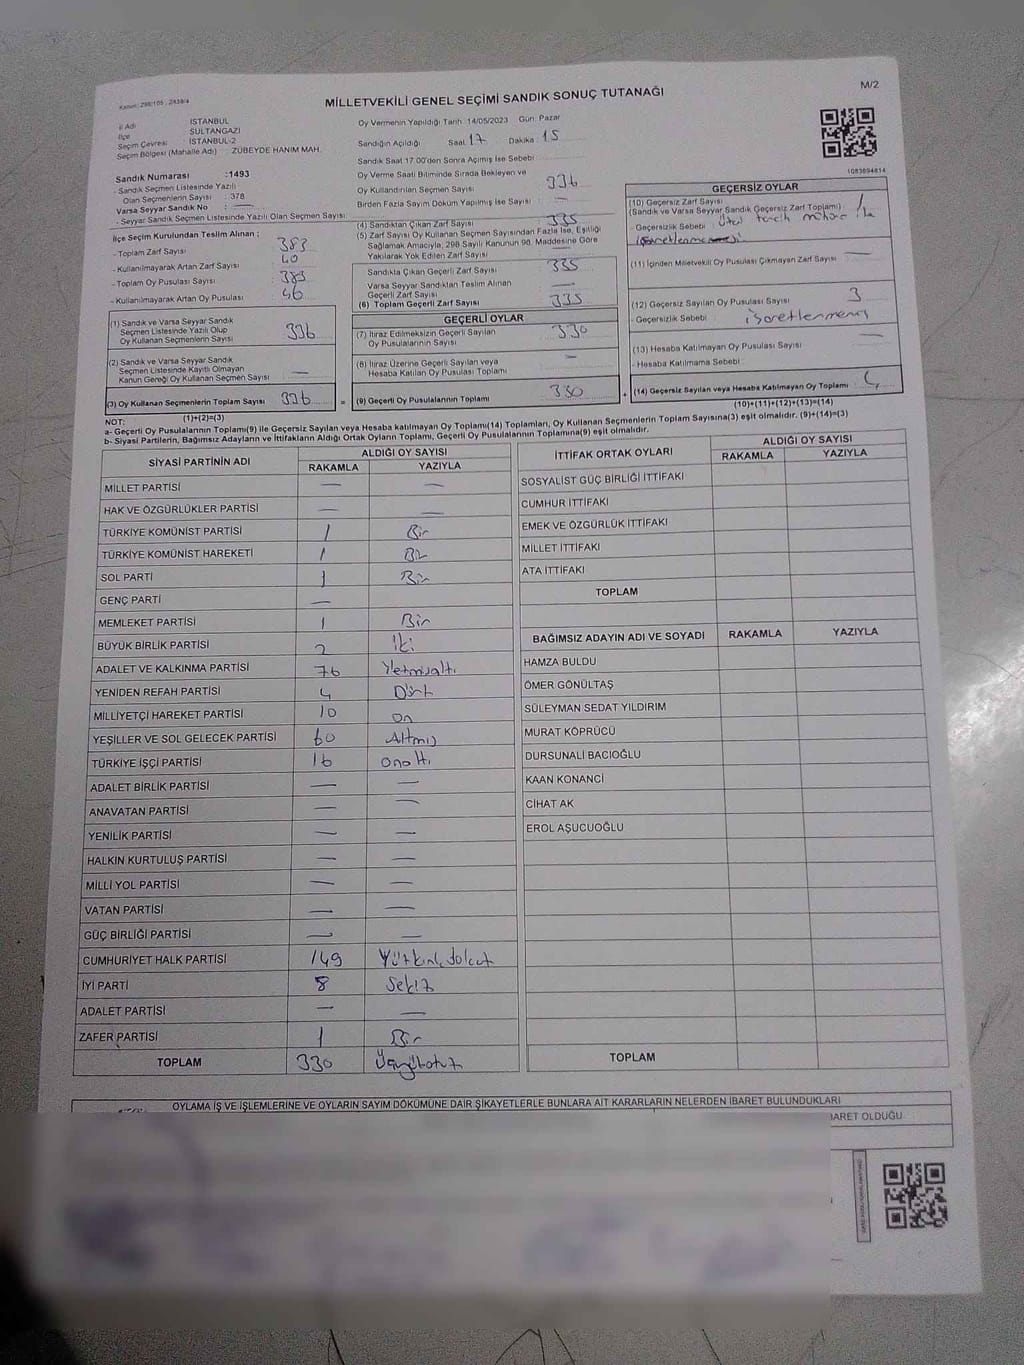 Kanun: 298/105, 2839/4
MİLLETVEKİLİ GENEL SEÇİMİ SANDIK SONUÇ TUTANAĞI
M/2
İl Adı İSTANBUL
İlçe SULTANGAZİ
Seçim Çevresi İSTANBUL-2
Seçim Bölgesi (Mahalle Adı) : ZÜBEYDE HANIM MAH.
Sandık Numarası :1493
- Sandık Seçmen Listesinde Yazılı
Olan Seçmenlerin Sayısı : 378
Varsa Seyyar Sandık No : —
- Seyyar Sandık Seçmen Listesinde Yazılı Olan Seçmen Sayısı:
İlçe Seçim Kurulundan Teslim Alınan ;
- Toplam Zarf Sayısı 383
- Kullanılmayarak Artan Zarf Sayısı 40
- Toplam Oy Pusulası Sayısı 383
- Kullanılmayarak Artan Oy Pusulası 46
(1) Sandık ve Varsa Seyyar Sandık
Seçmen Listesinde Yazılı Olup
Oy Kullanan Seçmenlerin Sayısı 336
(2) Sandık ve Varsa Seyyar Sandık
Seçmen Listesinde Kayıtlı Olmayan
Kanun Gereği Oy Kullanan Seçmen Sayısı —
(3) Oy Kullanan Seçmenlerin Toplam Sayısı 336 =
(1)+(2)=(3)
Oy Vermenin Yapıldığı Tarih 14/05/2023 Gün: Pazar
Sandığın Açıldığı Saat 17 Dakika: 15
Sandık Saat 17.00'den Sonra Açılmış İse Sebebi
Oy Verme Saati Bitiminde Sırada Bekleyen ve
Oy Kullandırılan Seçmen Sayısı 336
Birden Fazla Sayım Döküm Yapılmış İse Sayısı : —
(4) Sandıktan Çıkan Zarf Sayısı 335
(5) Zarf Sayısı Oy Kullanan Seçmen Sayısından Fazla İse, Eşitliği
Sağlamak Amacıyla, 298 Sayılı Kanunun 98. Maddesine Göre
Yakılarak Yok Edilen Zarf Sayısı —
Sandıkta Çıkan Geçerli Zarf Sayısı 335
Varsa Seyyar Sandıktan Teslim Alınan
Geçerli Zarf Sayısı —
(6) Toplam Geçerli Zarf Sayısı 335
GEÇERLİ OYLAR
(7) İtiraz Edilmeksizin Geçerli Sayılan
Oy Pusulalarının Sayısı 330
(8) İtiraz Üzerine Geçerli Sayılan veya
Hesaba Katılan Oy Pusulası Toplamı —
(9) Geçerli Oy Pusulalarının Toplamı 330
1083894814
GEÇERSİZ OYLAR
(10) Geçersiz Zarf Sayısı
(Sandık ve Varsa Seyyar Sandık Geçersiz Zarf Toplamı) 1
- Geçersizlik Sebebi tercih mührü ile
(11) İçinden Milletvekili Oy Pusulası Çıkmayan Zarf Sayısı —
(12) Geçersiz Sayılan Oy Pusulası Sayısı 3
- Geçersizlik Sebebi işaretlenmemiş
(13) Hesaba Katılmayan Oy Pusulası Sayısı —
- Hesaba Katılmama Sebebi
+ (14) Geçersiz Sayılan veya Hesaba Katılmayan Oy Toplamı
(10)+(11)+(12)+(13)=(14)
NOT:
a- Geçerli Oy Pusulalarının Toplamı(9) ile Geçersiz Sayılan veya Hesaba katılmayan Oy Toplamı(14) Toplamları, Oy Kullanan Seçmenlerin Toplam Sayısına(3) eşit olmalıdır. (9)+(14)=(3)
b- Siyasi Partilerin, Bağımsız Adayların ve İttifakların Aldığı Ortak Oyların Toplamı, Geçerli Oy Pusulalarının Toplamına(9) eşit olmalıdır.
SİYASİ PARTİNİN ADI ALDIĞI OY SAYISI
RAKAMLA YAZIYLA
MİLLET PARTİSİ — —
HAK VE ÖZGÜRLÜKLER PARTİSİ — —
TÜRKİYE KOMÜNİST PARTİSİ 1 Bir
TÜRKİYE KOMÜNİST HAREKETİ 1 Bir
SOL PARTİ 1 Bir
GENÇ PARTİ —
MEMLEKET PARTİSİ 1 Bir
BÜYÜK BİRLİK PARTİSİ 2 İki
ADALET VE KALKINMA PARTİSİ 76 Yetmişaltı
YENİDEN REFAH PARTİSİ 4 Dört
MİLLİYETÇİ HAREKET PARTİSİ 10 On
YEŞİLLER VE SOL GELECEK PARTİSİ 60 Altmış
TÜRKİYE İŞÇİ PARTİSİ 16 Onaltı
ADALET BİRLİK PARTİSİ — —
ANAVATAN PARTİSİ — —
YENİLİK PARTİSİ — —
HALKIN KURTULUŞ PARTİSİ — —
MİLLİ YOL PARTİSİ — —
VATAN PARTİSİ — —
GÜÇ BİRLİĞİ PARTİSİ — —
CUMHURİYET HALK PARTİSİ 149 Yüzkırkdokuz
İYİ PARTİ 8 Sekiz
ADALET PARTİSİ — —
ZAFER PARTİSİ 1 Bir
TOPLAM 330 Üçyüzotuz
İTTİFAK ORTAK OYLARI ALDIĞI OY SAYISI
RAKAMLA YAZIYLA
SOSYALİST GÜÇ BİRLİĞİ İTTİFAKI
CUMHUR İTTİFAKI
EMEK VE ÖZGÜRLÜK İTTİFAKI
MİLLET İTTİFAKI
ATA İTTİFAKI
TOPLAM
BAĞIMSIZ ADAYIN ADI VE SOYADI RAKAMLA YAZIYLA
HAMZA BULDU
ÖMER GÖNÜLTAŞ
SÜLEYMAN SEDAT YILDIRIM
MURAT KÖPRÜCÜ
DURSUNALİ BACIOĞLU
KAAN KONANCİ
CİHAT AK
EROL AŞUCUOĞLU
TOPLAM
OYLAMA İŞ VE İŞLEMLERİNE VE OYLARIN SAYIM DÖKÜMÜNE DAİR ŞİKAYETLERLE BUNLARA AİT KARARLARIN NELERDEN İBARET BULUNDUKLARI
İBARET OLDUĞU